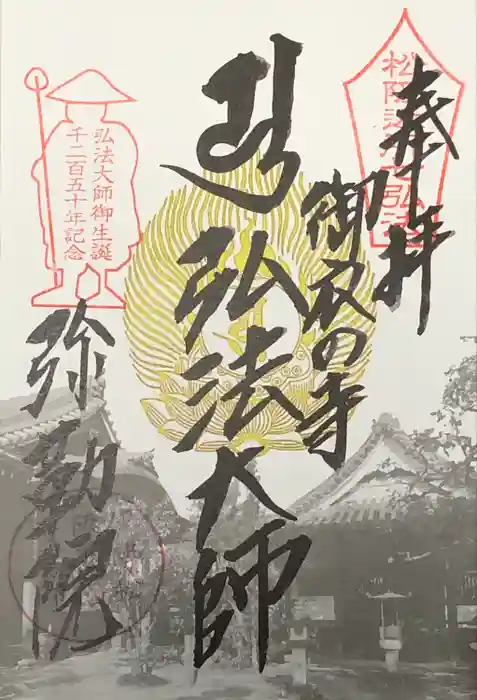 奉拝
松阪
弘法
御衣の寺
弘法大師
弘法大師御生誕
千二百五十年記念
弥勒院